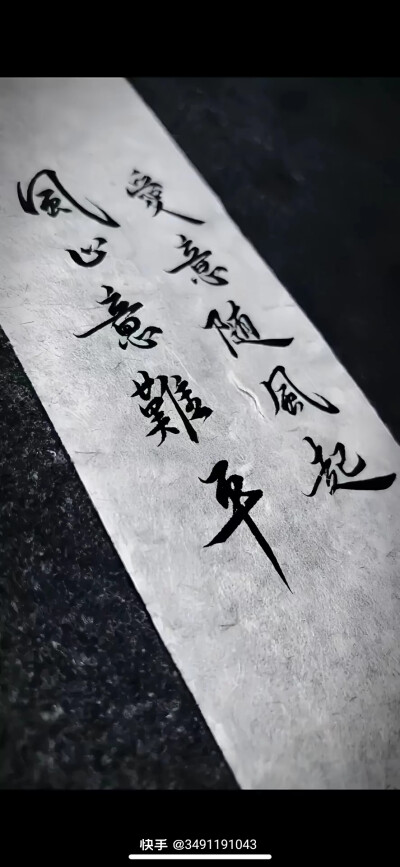 愛意随風起
風止意難平
快手 @3491191043